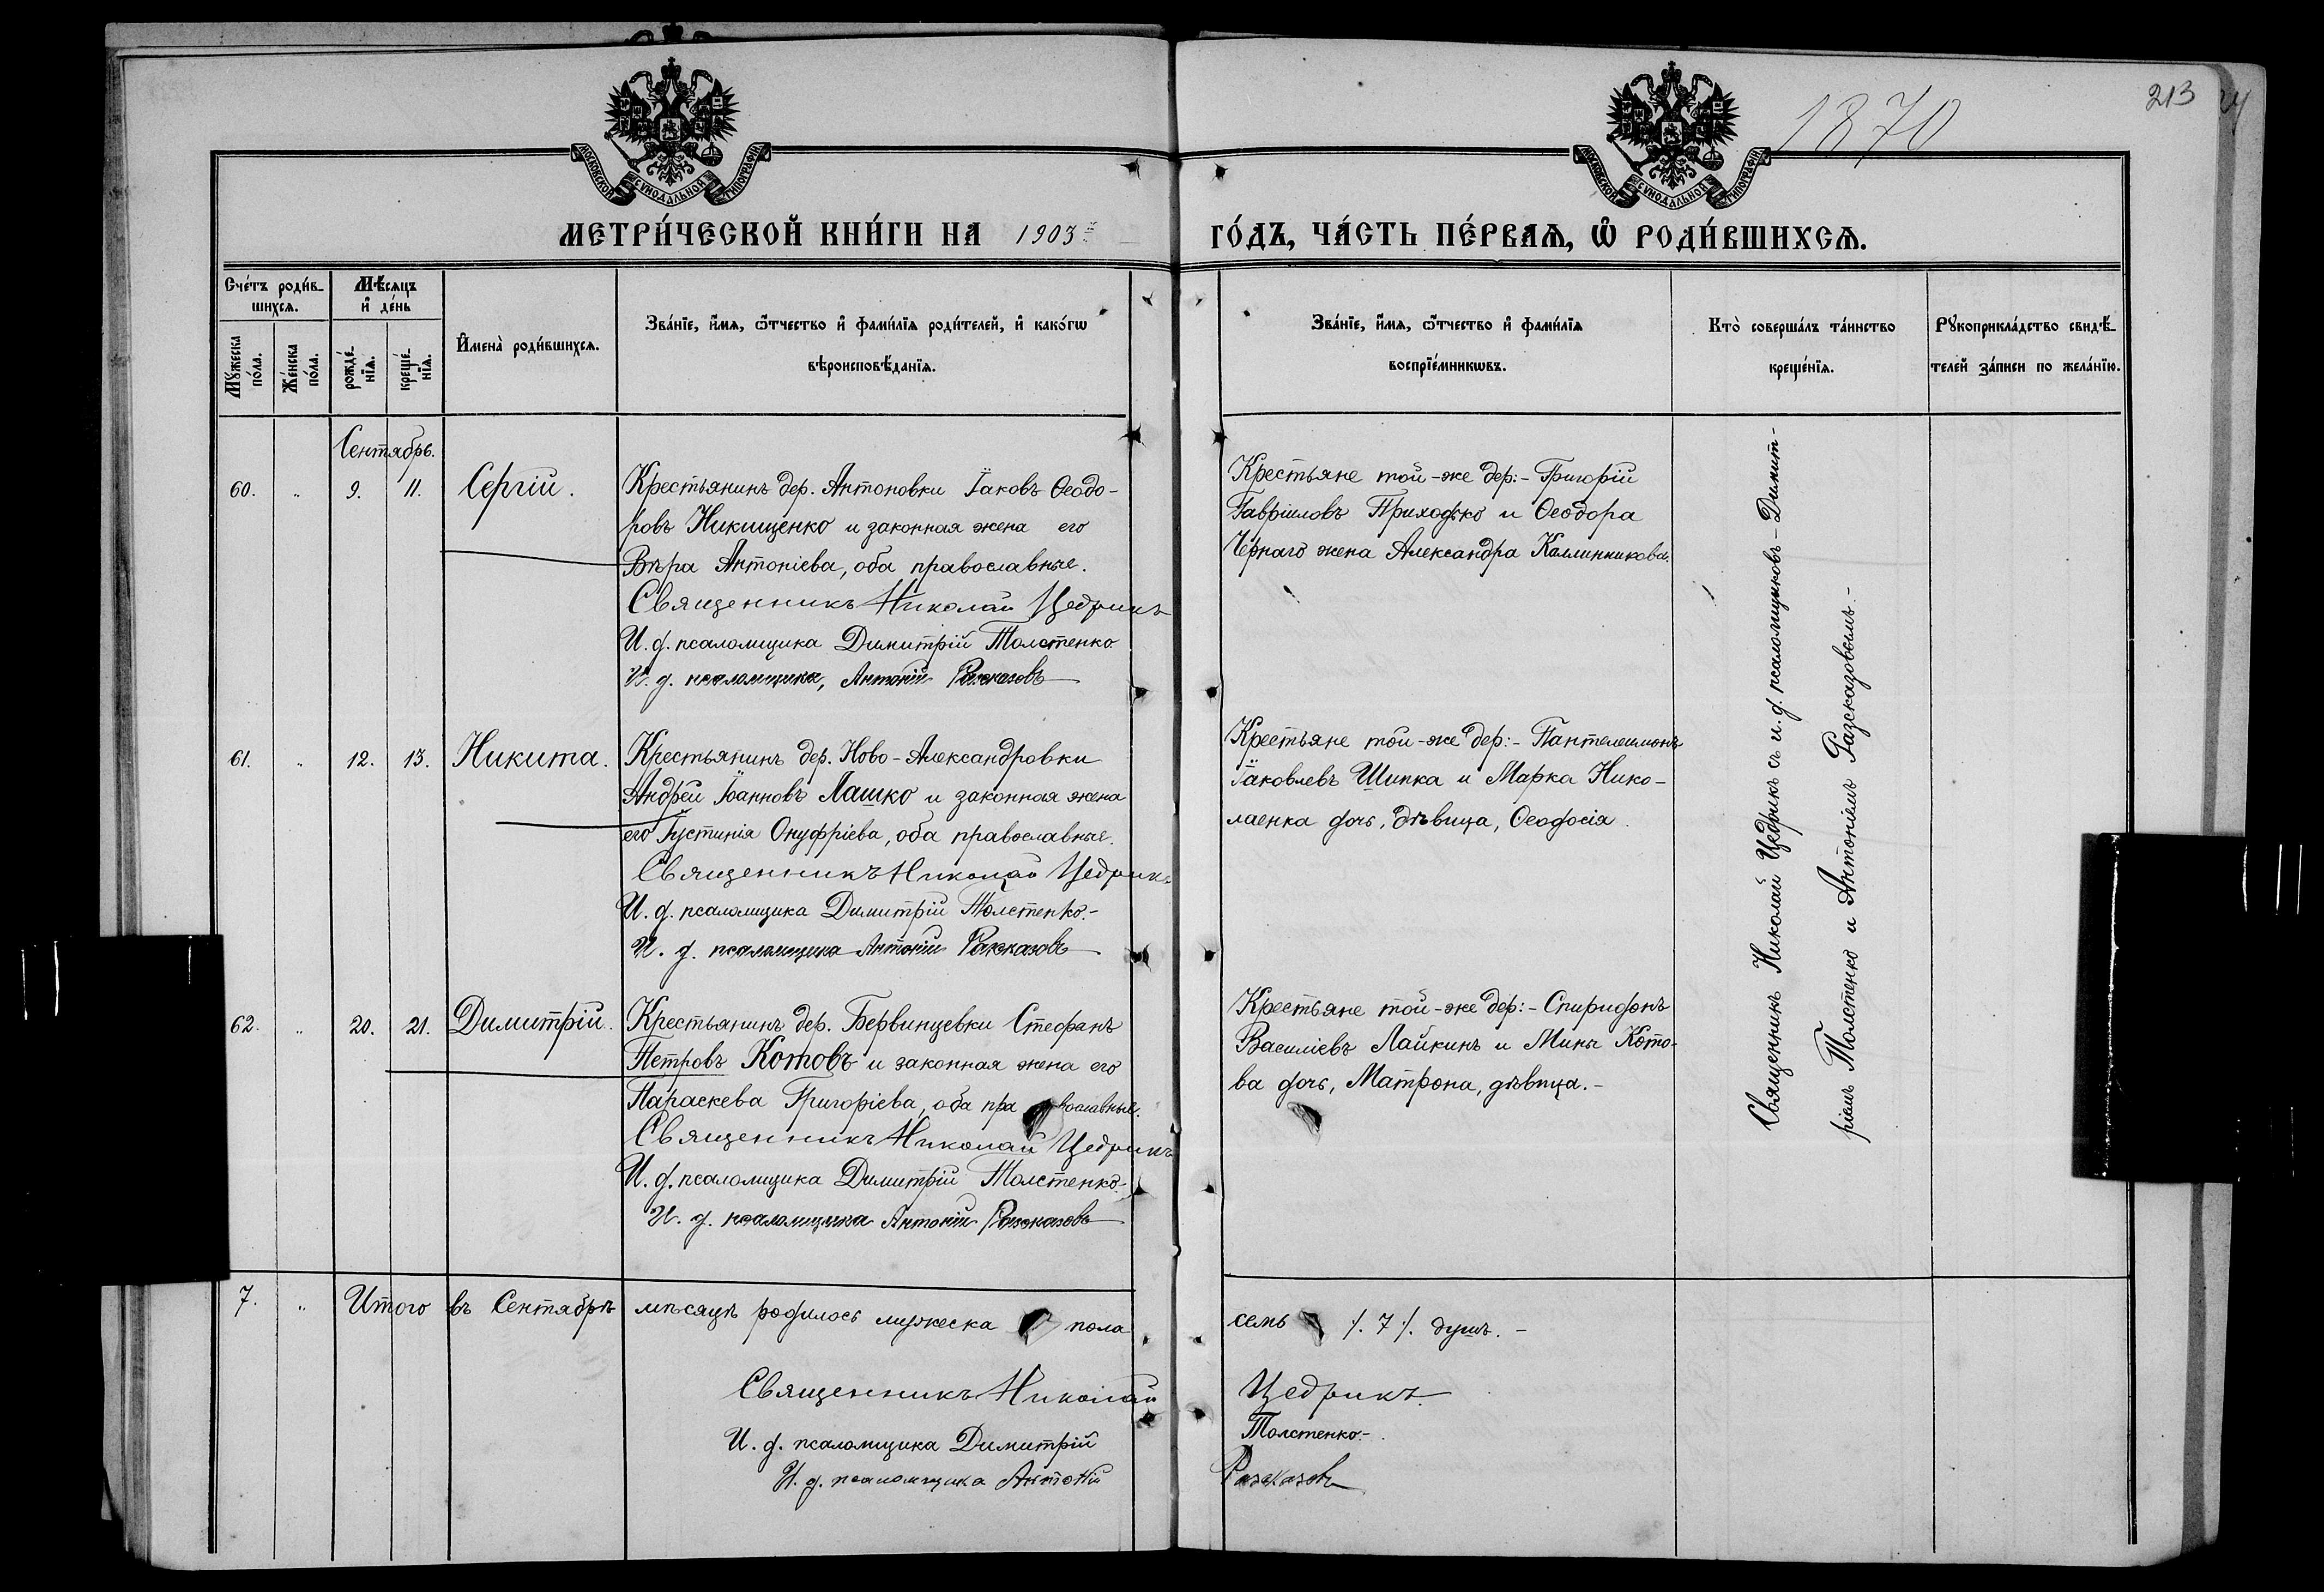 1870
213
МОСКОВСКОЙ СѴНОДАЛЬНОЙ ТИПОГРАФІИ
МОСКОВСКОЙ СѴНОДАЛЬНОЙ ТИПОГРАФІИ
МЕТРИ́ЧЕСКОЙ КНИ́ГИ НА 1903й ГО́ДЪ, ЧА́СТЬ ПЕ́РВАѦ, Ѡ҆ РОДИ́ВШИХСѦ.
Сче́тъ роди́в-
шихсѧ.
Мꙋ́жеска по́ла.
Же́нска по́ла.
Мѣ́сѧцъ
и҆ де́нь
рожде́-
нїѧ.
креще́-
нїѧ.
И҆мена̀ роди́вшихсѧ.
Зва́нїе, и҆́мѧ, ѻ҆́тчество и҆ фами́лїѧ роди́телей, и҆ како́гѡ
вѣроисповѣ́данїѧ.
Зва́нїе, и҆́мѧ, ѻ҆́тчество и҆ фами́лїѧ
воспрїе́мникѡвъ.
Кто̀ соверша́лъ та́инство
креще́нїѧ.
Рꙋкоприкла́дство свидѣ́-
телей за́писи по жела́нїю.
Сентябрь.
60. „ 9. 11. Сергій.
Крестьянинъ дер. Антоновки Іаковъ Ѳеодо-
ровъ Никищенко и законная жена его
Вѣра Антоніева, оба православные.
Священникъ Николай Цедрикъ
И. д. псаломщика Димитрій Толстенко
И. д. псаломщика, Антоній Разсказовъ
Крестьяне той-же дер:- Григорій
Гавріиловъ Приходько и Ѳеодора
Чернаго жена Александра Каллиникова.
61. „ 12. 13. Никита.
Крестьянинъ дер. Ново-Александровки
Андрей Іоанновъ Лашко и законная жена
его Іустинія Онуфріева, оба православные.
Священникъ Николай Цедрикъ
И. д. псаломщика Димитрій Толстенко.-
И. д. псаломщика Антоній Разсказовъ
Крестьяне той-же дер:- Пантелеимонъ
Іаковлевъ Шипка и Марка Нико-
лаенка дочь, дѣвица, Ѳеодосія.
62. „ 20. 21. Димитрій.
Крестьянинъ дер. Бервинцевки Стефанъ
Петровъ Котовъ и законная жена его
Параскева Григоріева, оба православные.
Священникъ Николай Цедрикъ
И. д. псаломщика Димитрій Толстенко.-
И. д. псаломщика Антоній Разсказовъ
Крестьяне той-же дер:- Спиридонъ
Василіевъ Лайкинъ и Мины Кото-
ва дочь, Матрона, дѣвица.-
Священникъ Николай Цедрикъ съ и. д. псаломщиковъ - Димит-
ріемъ Толстенко и Антоніемъ Разсказовымъ.-
7. „ Итого въ Сентябрѣ мѣсяцѣ родилось мужеска пола семь /.7/. душъ.-
Священникъ Николай Цедрикъ
И. д. псаломщика Димитрій Толстенко.-
И. д. псаломщика Антоній Разсказовъ